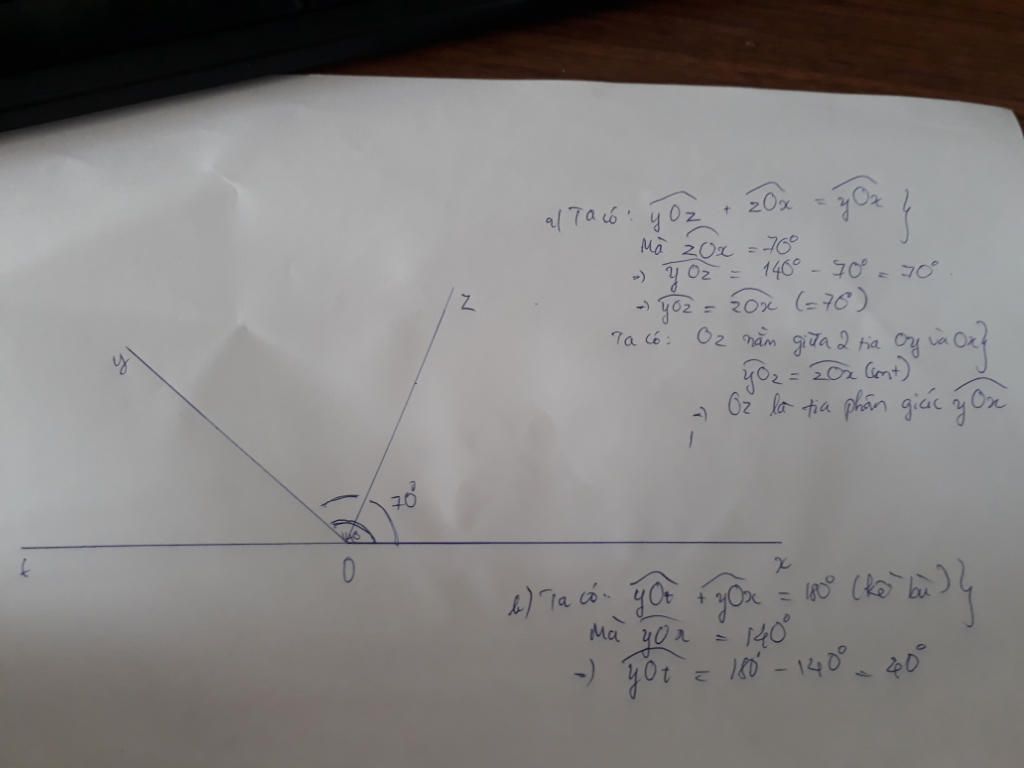 y
z
70°
140°
t
O
x
a) Ta có: yOz + zOx = yOx }
Mà zOx = 70°
→) yOz = 140° - 70° = 70°
→ yOz = zOx (=70°)
Ta có: Oz nằm giữa 2 tia Oy và Ox }
yOz = zOx (cmt)
→) Oz là tia phân giác yOx
b) Ta có: yOt + yOx = 180° (kề bù) }
Mà yOx = 140°
→) yOt = 180° - 140° = 40°